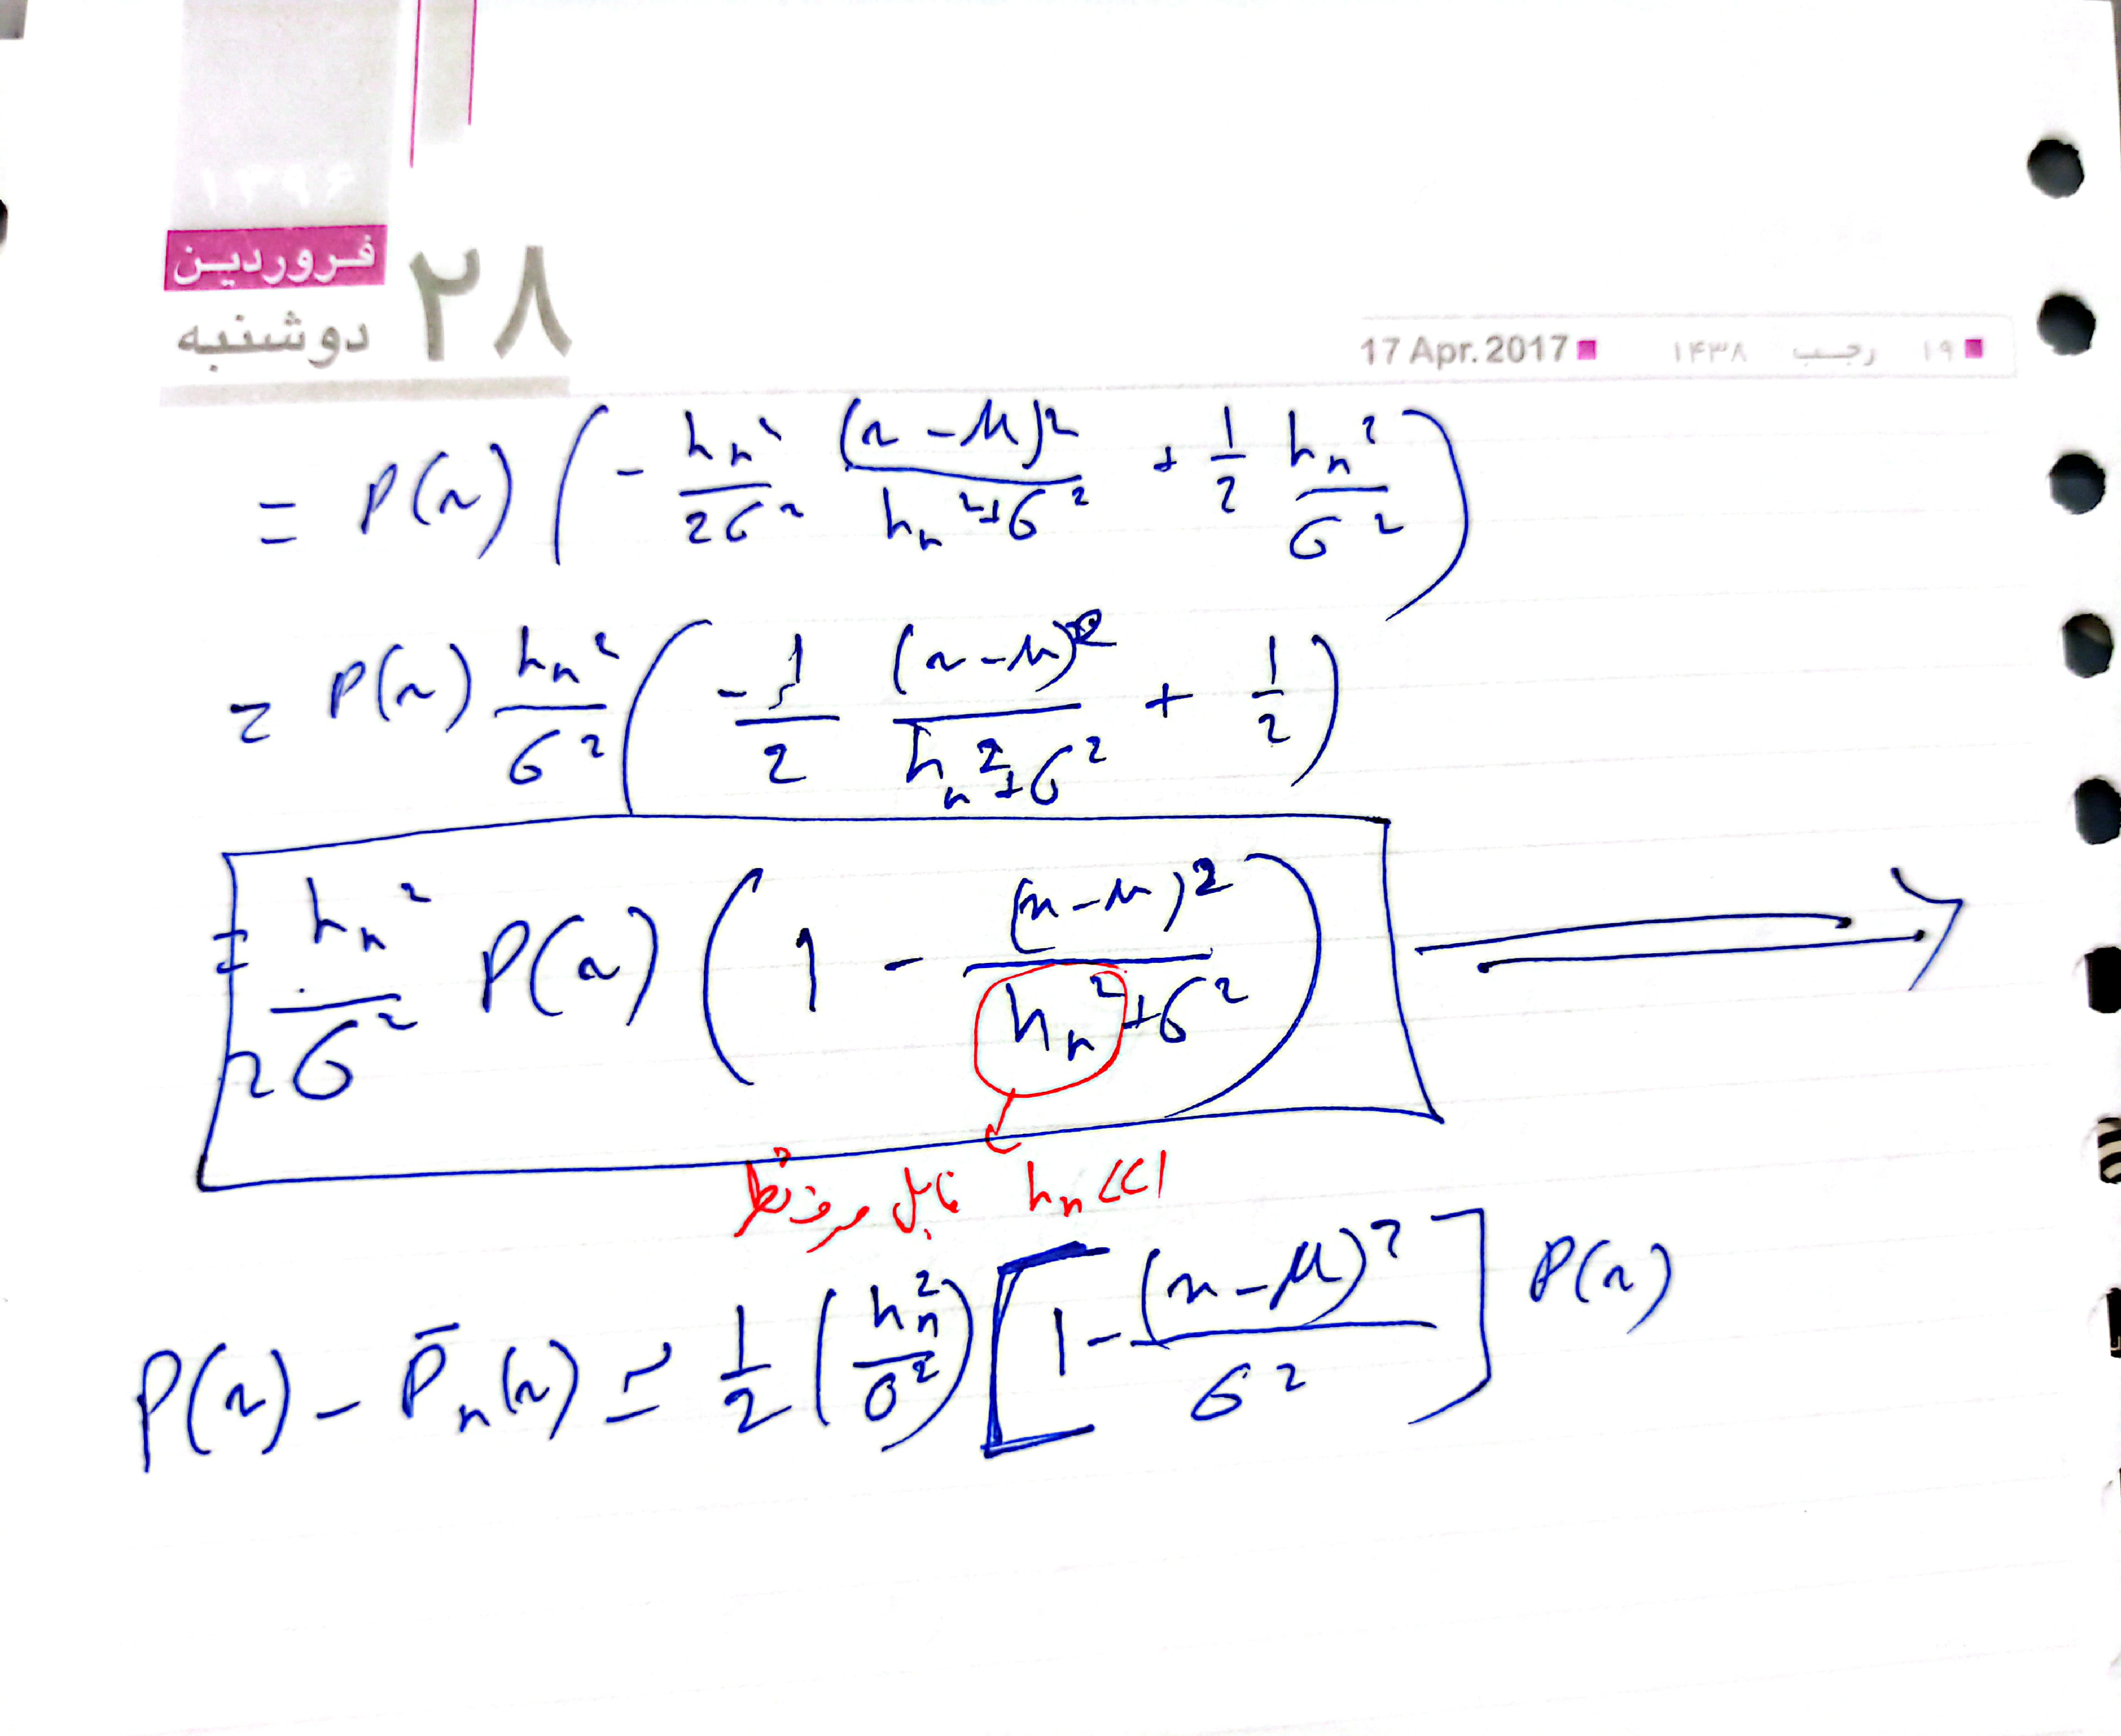 ۱۳۹۶
فروردین
دوشنبه ۲۸
17 Apr. 2017 ۱۴۳۸ رجب ۱۹
= P(x) ( - hn² / 2σ² (x - μ)² / hn² + σ² + 1/2 hn² / σ² )
= P(x) hn² / σ² ( -1/2 (x - μ)² / hn² + σ² + 1/2 )
= hn² / 2σ² P(x) ( 1 - (x - μ)² / hn² + σ² )
hn << 1 قابل صرفنظر
P(x) - P̄n(x) ≃ 1/2 ( hn² / σ² ) [ 1 - (x - μ)² / σ² ] P(x)